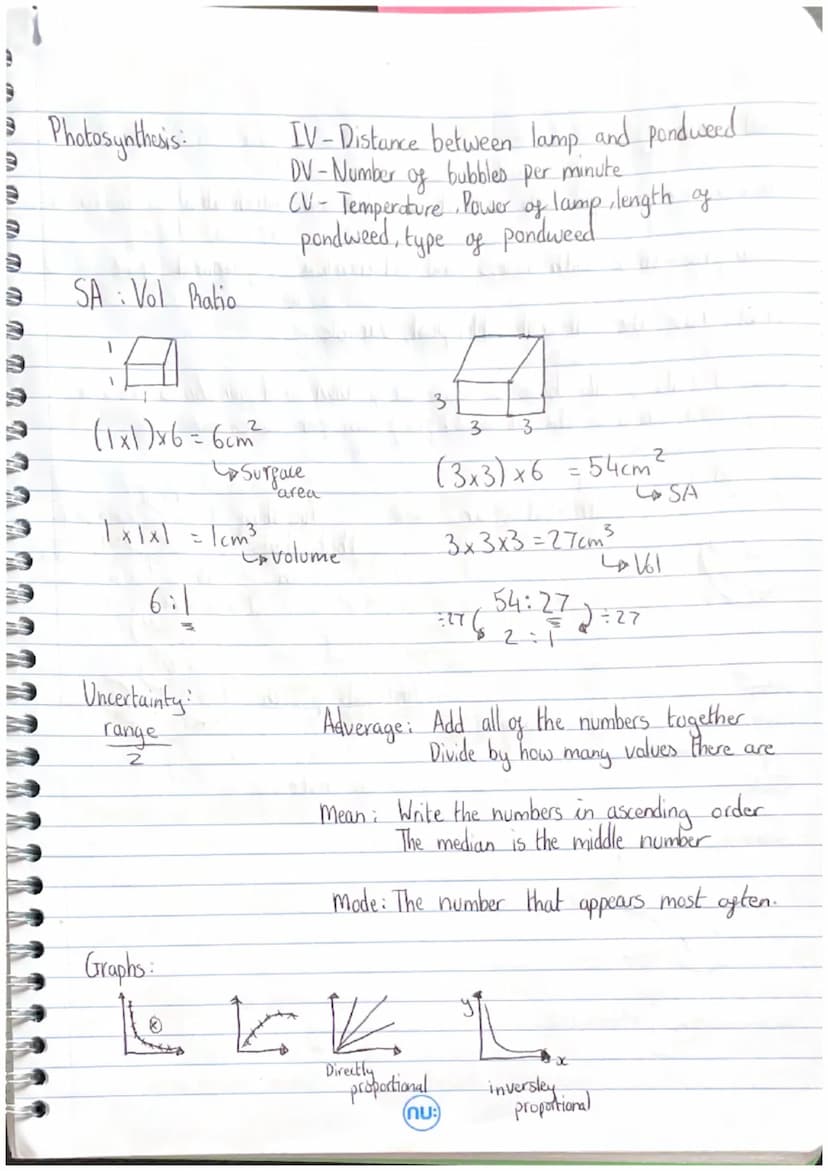 Photosynthesis:
IV - Distance between lamp and pondweed
DV - Number of bubbles per minute
CV - Temperature, Power of lamp, length of
pondweed, type of pondweed
SA : Vol Ratio
1
1
1
(1x1)x6 = 6cm²
↳ Surface
area
1x1x1 = 1cm³
↳ volume
6:1
3
3 3
(3x3) x6 = 54cm²
↳ SA
3x3x3 = 27cm³
↳ Vol
÷27 ( 54:27 ) ÷27
2 : 1
Uncertainty:
range
2
Adverage: Add all of the numbers together
Divide by how many values there are
Mean: Write the numbers in ascending order
The median is the middle number
Mode: The number that appears most often.
Graphs:
Directly
proportional
y
x
inversley
proportional
nu: